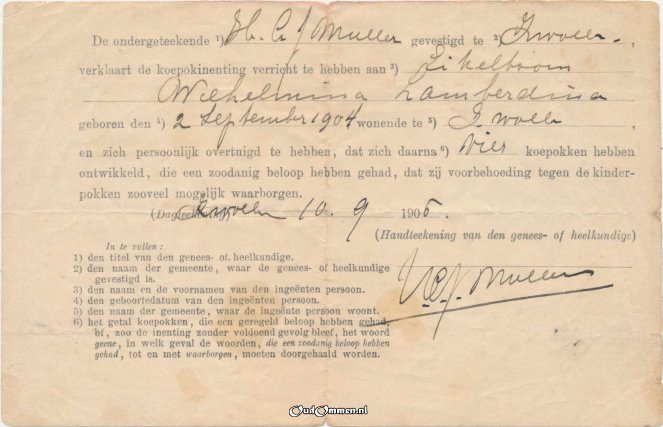 De ondergeteekende 1) H. C. J. Muller gevestigd te 2) Zwolle,
verklaart de koepokinenting verricht te hebben aan 3) Eikelboom
Wilhelmina Lamberdina
geboren den 4) 2 September 1904 wonende te 5) Zwolle,
en zich persoonlijk overtuigd te hebben, dat zich daarna 6) Vier koepokken hebben
ontwikkeld, die een zoodanig beloop hebben gehad, dat zij voorbehoeding tegen de kinder-
pokken zooveel mogelijk waarborgen.
Zwolle 10. 9 1905.
(Handteekening van den genees- of heelkundige)
In te vullen:
1) den titel van den genees- of heelkundige.
2) den naam der gemeente, waar de genees- of heelkundige
gevestigd is.
3) den naam en de voornamen van den ingeënten persoon.
4) den geboortedatum van den ingeënten persoon.
5) den naam der gemeente, waar de ingeënte persoon woont.
6) het getal koepokken, die een geregeld beloop hebben gehad,
of, zoo de inenting zonder voldoend gevolg bleef, het woord
geene, in welk geval de woorden, die een zoodanig beloop hebben
gehad, tot en met waarborgen, moeten doorgehaald worden.
Muller
OudOmmen.nl